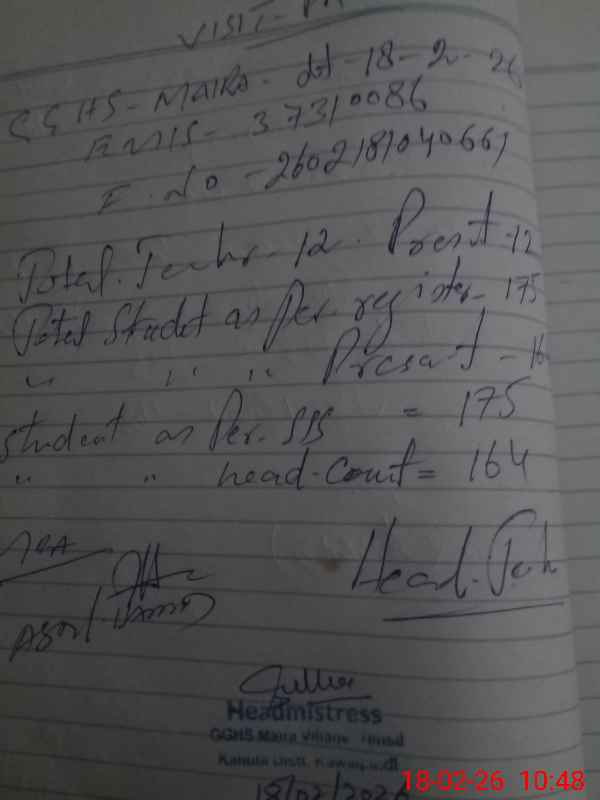 VISIT-
GGHS-MAIRA- dt-18-2-26
EMIS- 37310086
F. NO -2602181040661
Total. Teachr- 12. Presnt-12
Total Studet as Per register- 175
" " " Present -
Student as Per. SIS = 175
" " head-Count= 164
AEA
Head. Teh
Headmistress
GGHS Maira Village
Kahuta Distt. Rawalpindi
18/02/2026
18-02-26 10:48